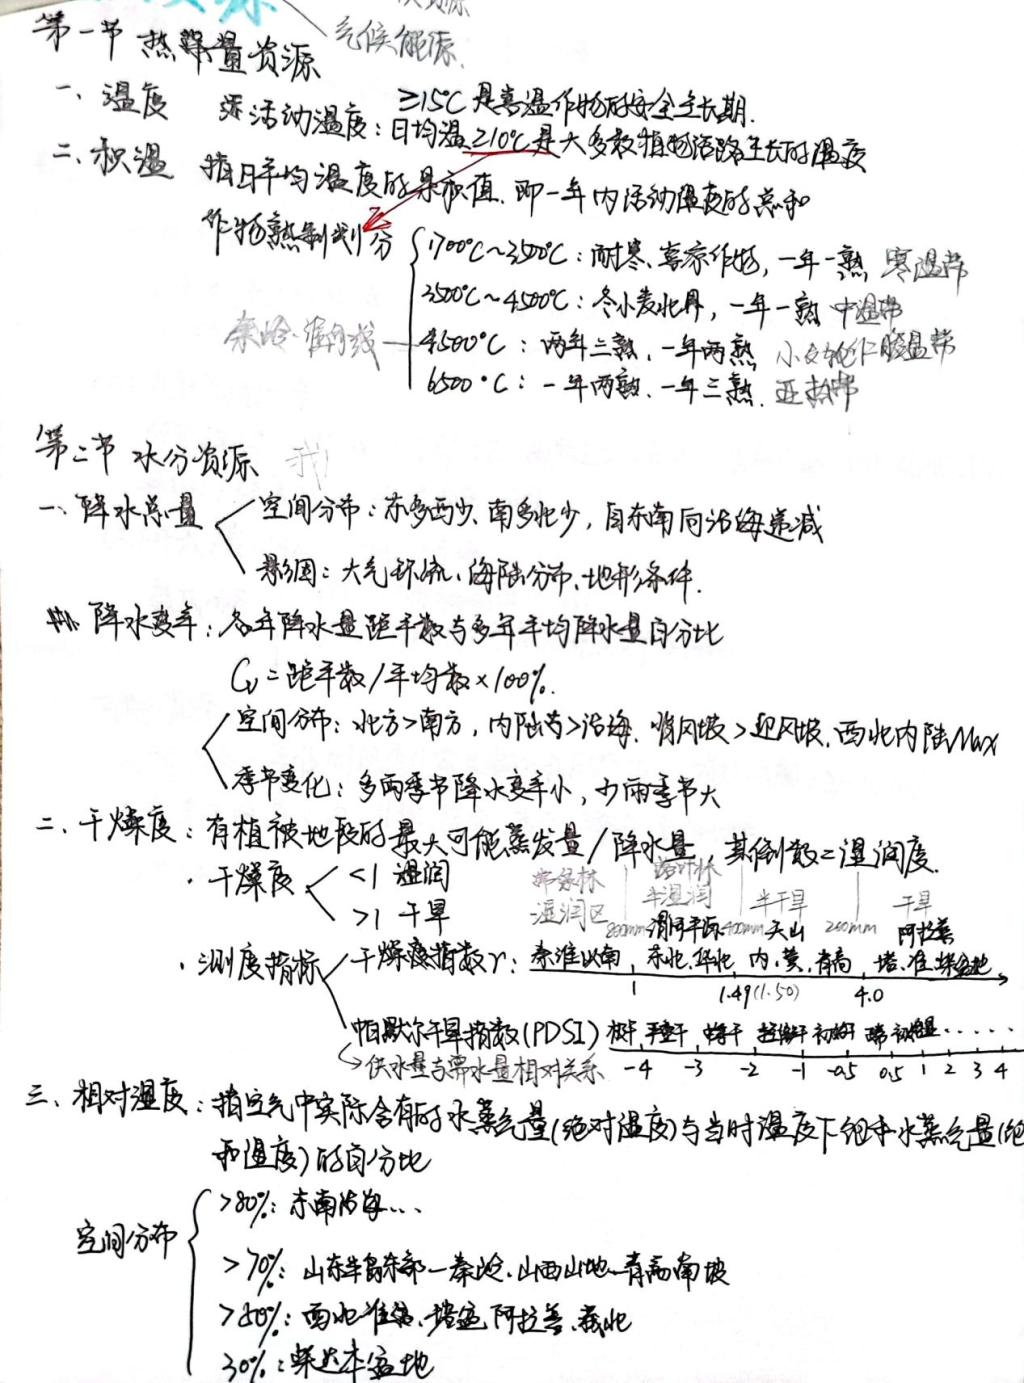 气候能源
第一节 热量资源
一、温度 活动温度：日均温≥10℃是大多数植物活跃生长的温度
≥15℃是喜温作物的安全生长期.
二、积温 指日平均温度的累积值.即一年内活动温度的总和
作物熟制划分
1700℃~3500℃：耐寒、喜凉作物，一年一熟 寒温带
3500℃~4500℃：冬小麦北界，一年一熟 中温带
秦岭·淮河线
4500℃：两年三熟、一年两熟 暖温带
6500℃：一年两熟、一年三熟. 亚热带
第二节 水分资源 我
一、降水总量
空间分布：东多西少、南多北少，自东南向沿海递减
影因：大气环流、海陆分布、地形条件.
降水变率：各年降水量距平数与多年平均降水量百分比
Cv=距平数/平均数×100%.
空间分布：北方>南方，内陆>沿海、背风坡>迎风坡.西北内陆Max
季节变化：多雨季节降水变率小，少雨季节大
二、干燥度：有植被地段的最大可能蒸发量/降水量 其倒数=湿润度.
·干燥度 <1 湿润
>1 干旱
湿润区 半湿润 半干旱 干旱
800mm 渭河平原 400mm 天山 200mm 阿拉善
·测度指标 干燥度指数r：秦淮以南 东北.华北 内、黄、青高 塔.准.柴盆地
1 1.49(1.50) 4.0
帕默尔干旱指数(PDSI)
供水量与需水量相对关系 -4 -3 -2 -1 -0.5 0.5 1 2 3 4
三、相对湿度：指空气中实际含有的水蒸气量(绝对湿度)与当时温度下饱和水蒸气量(饱
和湿度)的百分比
空间分布
>80%：东南沿海...
>70%：山东半岛东部—秦岭.山西山地—青高南坡
>50%：西北准盆、塔盆、阿拉善、藏北
30%：柴达木盆地